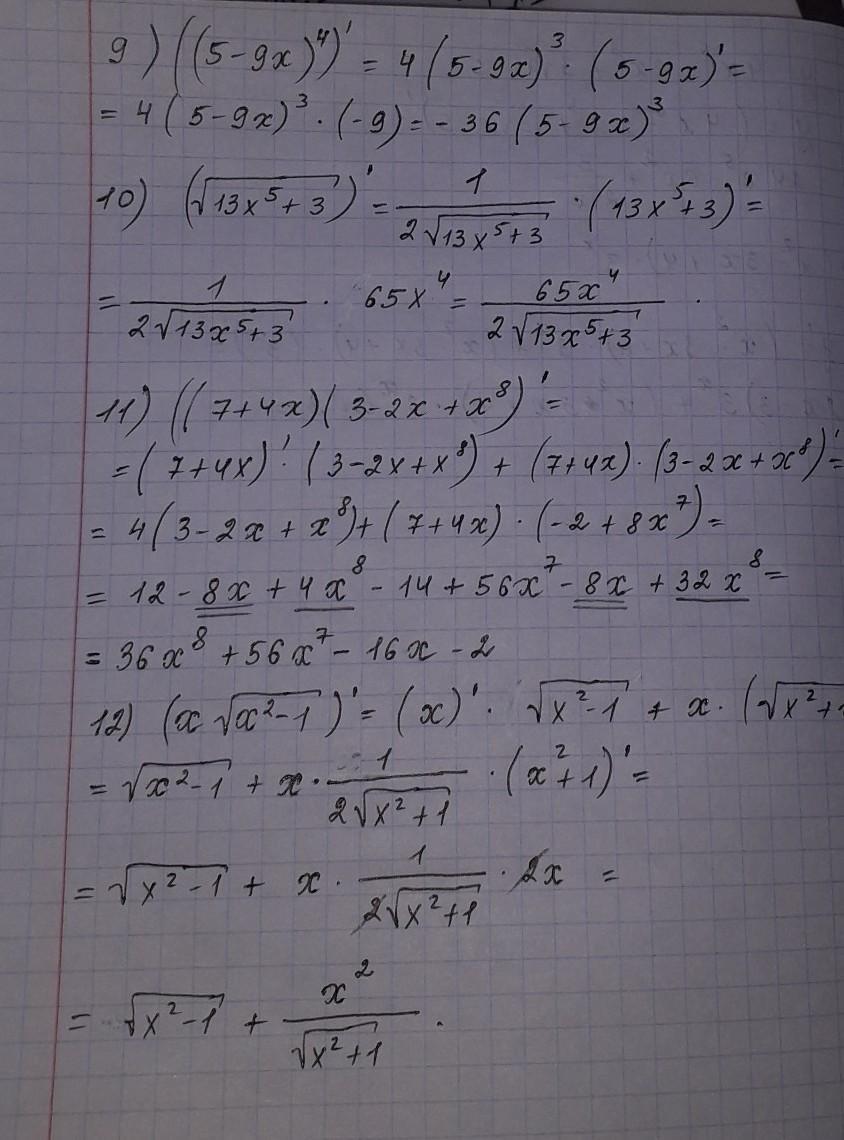 9) ((5-9x)⁴)' = 4(5-9x)³ · (5-9x)' =
= 4(5-9x)³ · (-9) = -36(5-9x)³
10) (√(13x⁵+3))' = 1/(2√(13x⁵+3)) · (13x⁵+3)' =
= 1/(2√(13x⁵+3)) · 65x⁴ = 65x⁴/(2√(13x⁵+3)) .
11) ((7+4x)(3-2x+x⁸)' =
= (7+4x)' · (3-2x+x⁸) + (7+4x) · (3-2x+x⁸)' =
= 4(3-2x+x⁸) + (7+4x) · (-2+8x⁷) =
= 12 - 8x + 4x⁸ - 14 + 56x⁷ - 8x + 32x⁸ =
= 36x⁸ + 56x⁷ - 16x - 2
12) (x√(x²-1))' = (x)' · √(x²-1) + x · (√(x²+1
= √(x²-1) + x · 1/(2√(x²+1)) · (x²+1)' =
= √(x²-1) + x · 1/(2√(x²+1)) · 2x =
= √(x²-1) + x²/√(x²+1) .